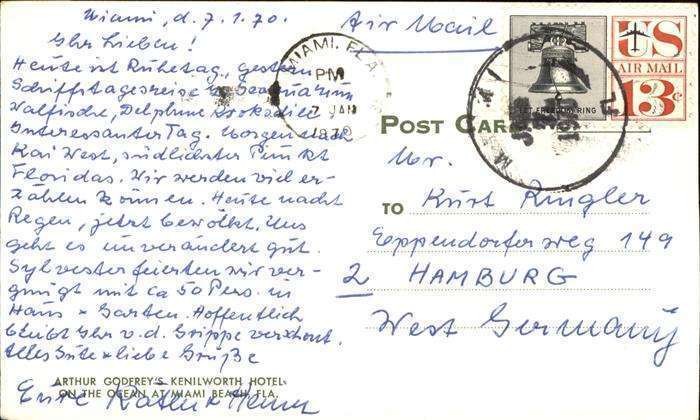 Miami, d. 7.1.70.
Ihr Lieben!
Heute ist Ruhetag, gestern
Schiffstagesreise z. Seaquarium
Walfische, Delphine, Krokodile,
Interessanter Tag. Morgen nach
Kai West, südlichster Punkt
Floridas. Wir werden viel er-
zählen können. Heute nacht
Regen, jetzt bewölkt. Uns
geht es unverändert gut.
Sylvester feierten wir ver-
gnügt mit ca 50 Pers. in
Haus + Garten. Hoffentlich
bleibt Ihr v. d. Grippe verschont.
Alles Gute + liebe Grüße
Eure
ARTHUR GODFREY'S KENILWORTH HOTEL
ON THE OCEAN AT MIAMI BEACH, FLA.
Air Mail
MIAMI, FLA
PM
7 JAN
1970
LET FREEDOM RING
US
AIR MAIL
13c
POST CARD
TO
Mr.
Kurt Ringler
Eppendorferweg 149
2 HAMBURG
West Germany